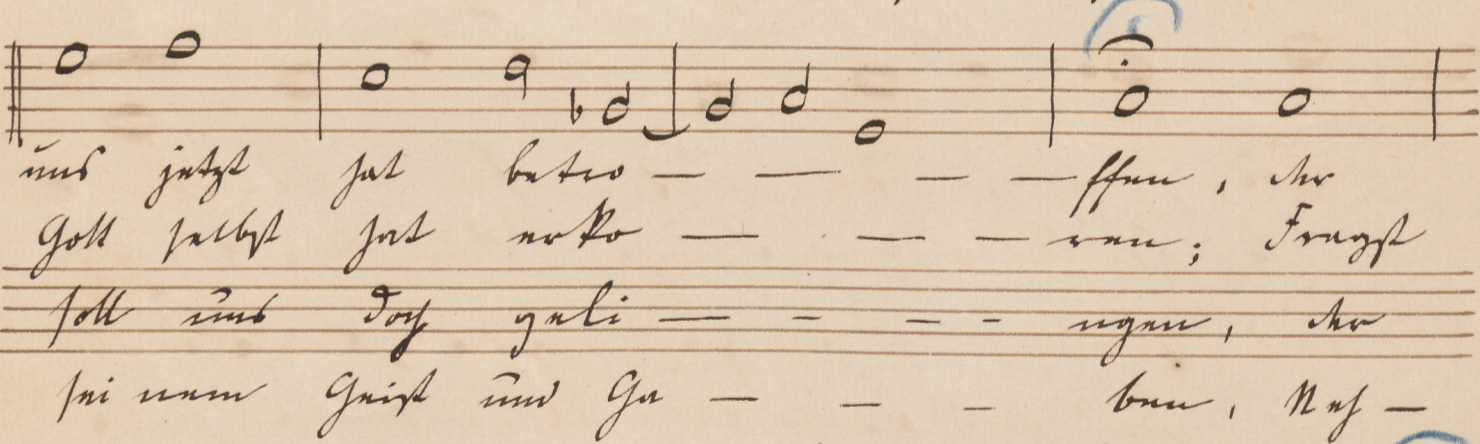 uns jetzt hat betro — — — — ffen, der
Gott selbst hat erko — — — ren; Fragst
soll uns doch geli — - - - ngen, der
sei nem Geist und Ga — — - ben, Neh —